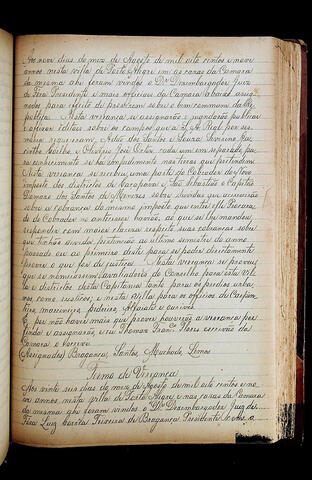 Aos nove dias do mez de Agosto de mil oito centos e nove
annos nesta villa de Porto Alegre em as casas da Camara
da mesma ahi foram vindos o Dr Dezembargador Juiz
de Fóra Presidente e mais officiaes da Camara abaixo assig-
nados para effeito de proverem sobre o bem commum da Re-
publica. Nesta veriança se assignarão e mandarão publicar
e afixar editaes sobre os campos que a S. A. Real por ses-
maria requereram Antonio dos Santos e Souza, Severino Pa-
checo e José cada um em separado pa-
ra conhecimento se ha impedimento nas terras que pertendem
Nesta veriança se recebeu uma parte do Cobrador do novo
imposto dos districtos de Cacapava e São Sebastião o Capitão
Damaso dos Santos de Menezes sobre duvidas que occorrerão
sobre a cobrança do mesmo imposto que entre elle Procura-
dor do Cobrador no antecesso havião, ao que se lhe mandou
responder com maior clareza respeito suas cobranças sobre
que tinhão duvidas, pertencião ao ultimo semestre do anno
passado ou ao primeiro deste para se poder directamente
prover o que for de justiça. Nesta veriança proveu
que se nomeassem avaliadores do Conselho para esta vil-
la e districtos desta Capitania tanto para os predios urba-
nos como rusticos; e nesta villa para os officios de Carpin-
teiro, marcineiro, pedreiro, Alfaiate e ourives.
E por não haver mais que prover houverão a veriança por
finda e assignarão, eu Thomaz Franco Flores escrivão da
Camara o escrevi
(Assignados) Bragança, Santos, Machado, Lemos
Termo de Veriança
Aos vinte seis dias do mez de Agosto de mil oito centos e no-
ve annos, nesta villa de Porto Alegre e nas casas da Camara
da mesma ahi foram vindos o Dr Dezembargador Juiz de
Fóra Luiz Corrêa Teixeira de Bragança Presidente